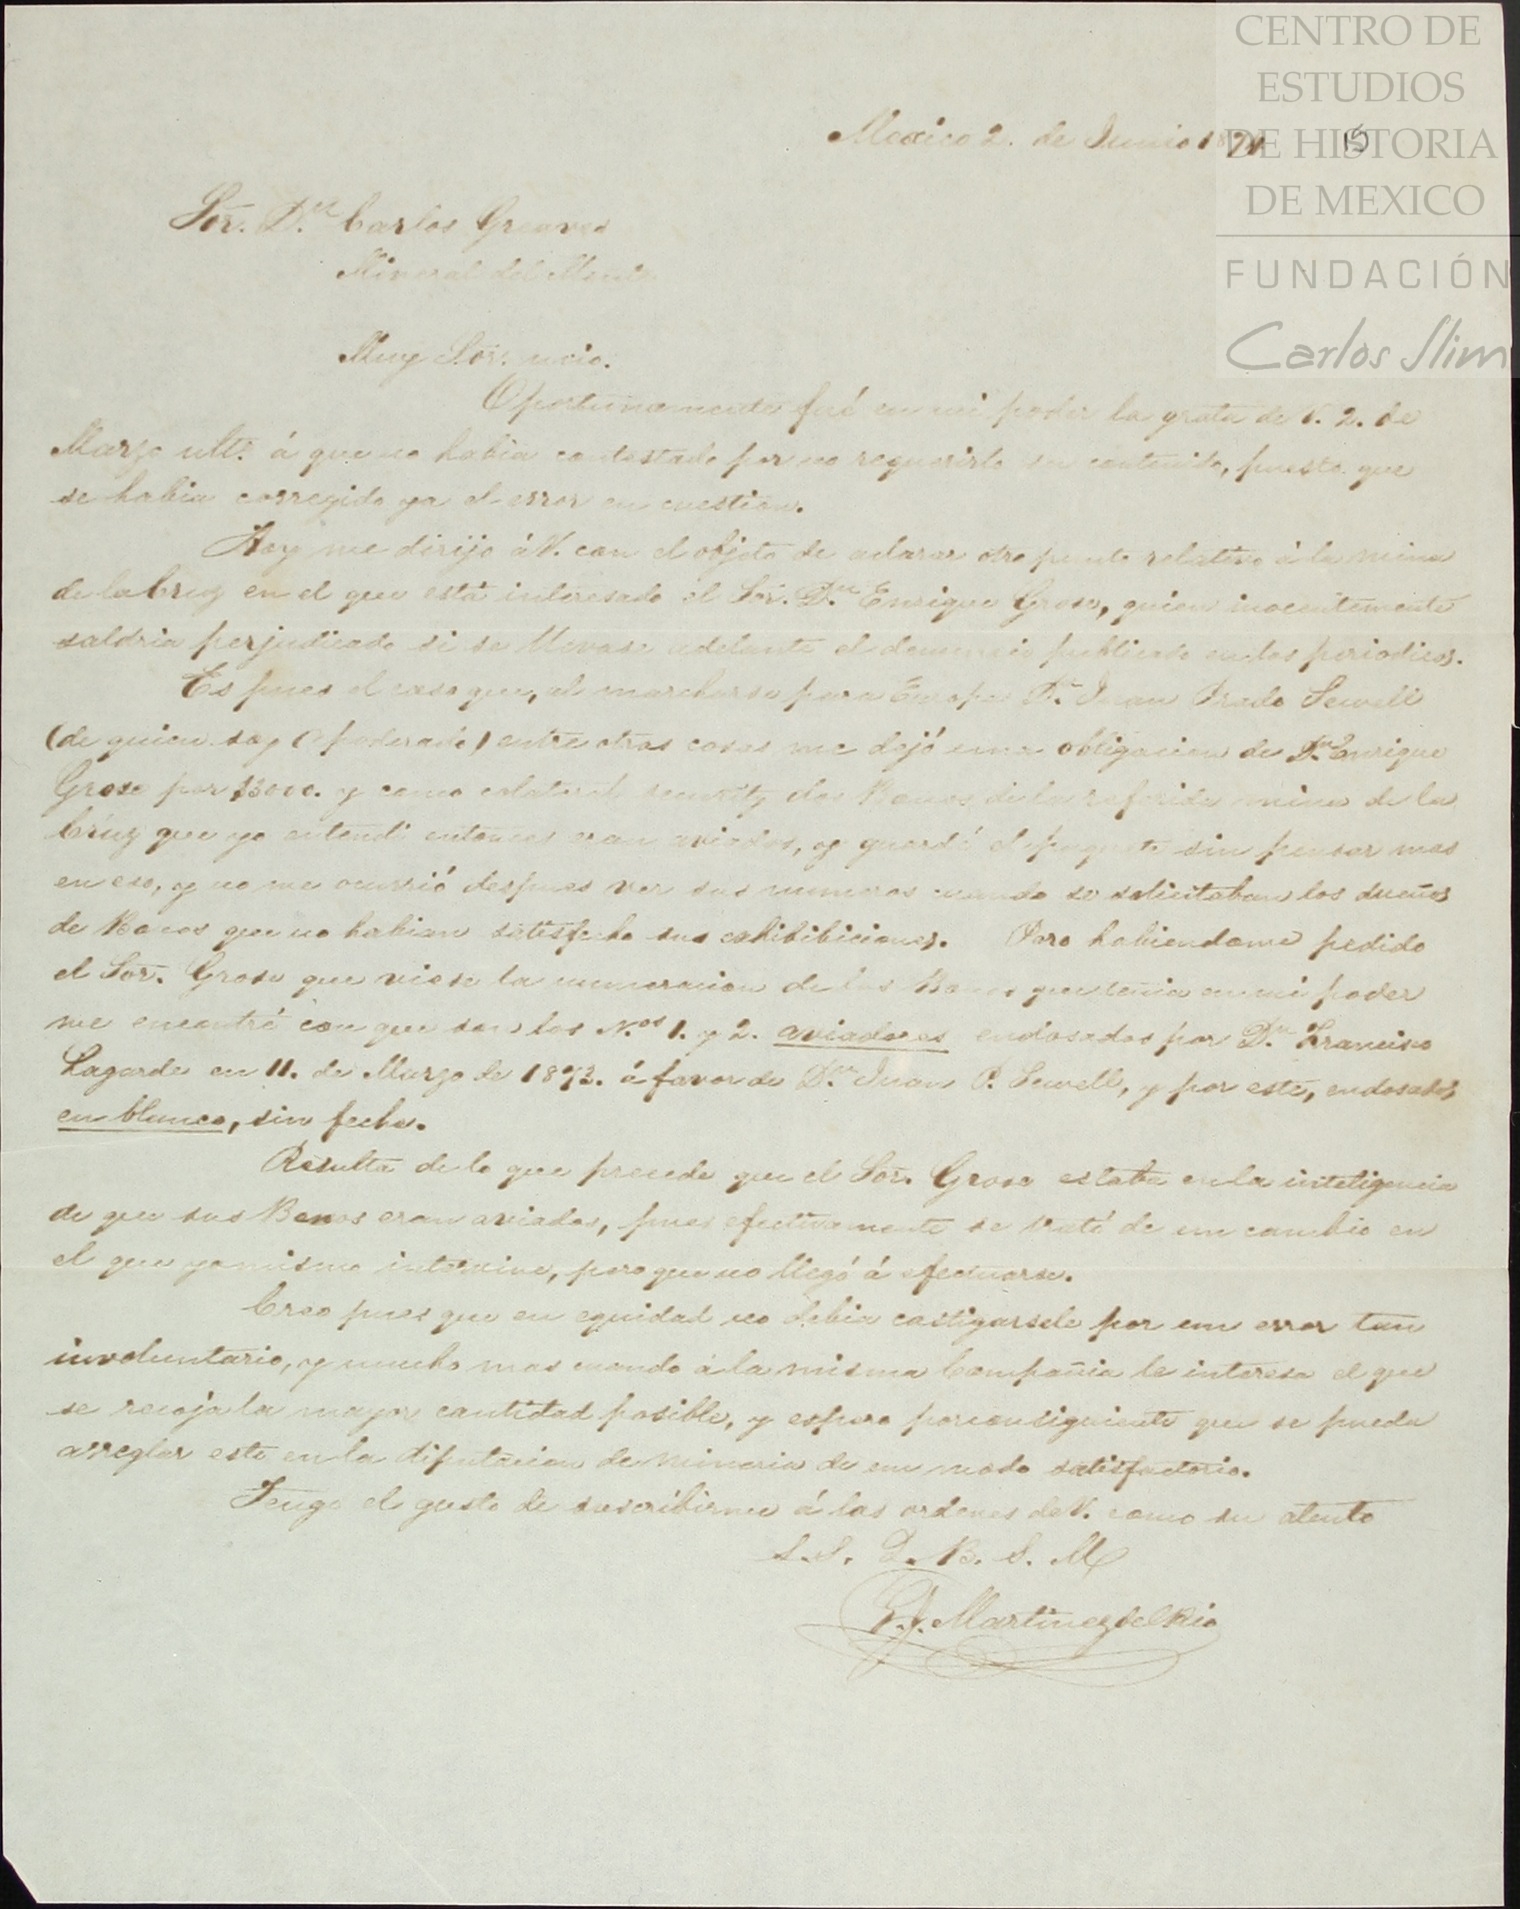 CENTRO DE
ESTUDIOS
DE HISTORIA
DE MEXICO
FUNDACIÓN
Carlos Slim
15
Mexico 2. de Junio 187
Sor. Dn. Carlos Greaves
Mineral del Monte
Muy Sor. mio.
Oportunamente fué en mi poder la grata de V. 2. de
Marzo ulto. á que no habia contestado por no requerirlo su contenido, puesto que
se habia corregido ya el error en cuestion.
Hoy me dirijo á V. con el objeto de aclarar otro punto relativo á la mina
de la Cruz en el que está interesado el Sor. Dn. Enrique Grose, quien inocentemente
saldria perjudicado si se llevase adelante el denuncio publicado en los periodicos.
Es pues el caso que, al marcharse para Europa Dn. Juan Prado Sewell
(de quien soy Apoderado) entre otras cosas me dejó una obligacion de Dn. Enrique
Grose por $3000. y como colateral security dos Bonos de la referida mina de la
Crúz que yo entendi entonces eran aviados, y guardé el paquete sin pensar mas
en eso, y no me ocurrió despues ver sus numeros cuando se solicitaban los dueños
de Bonos que no habian satisfecho sus exhibibiciones. Pero habiendome pedido
el Sor. Grose que viese la numeracion de los Bonos que tenia en mi poder
me encontré con que son los Nos. 1. y 2. aviadores endosados por Dn. Francisco
Lagarde en 11. de Marzo de 1873. á favor de Dn. Juan P. Sewell, y por este, endosados
en blanco, sin fecha.
Resulta de lo que precede que el Sor. Grose estaba en la inteligencia
de que sus Bonos eran aviados, pues efectivamente se trató de un cambio en
el que yo mismo intervine, pero que no llegó á efectuarse.
Creo pues que en equidad no debia castigarsele por un error tan
involuntario, y mucho mas cuando á la misma Compañia le interesa el que
se recoja la mayor cantidad posible, y espero por consiguiente que se pueda
arreglar este en la diputacion de mineria de un modo satisfactorio.
Tengo el gusto de suscribirme á las ordenes de V. como su atento
S. S. Q. B. S. M
Martinez del Rio